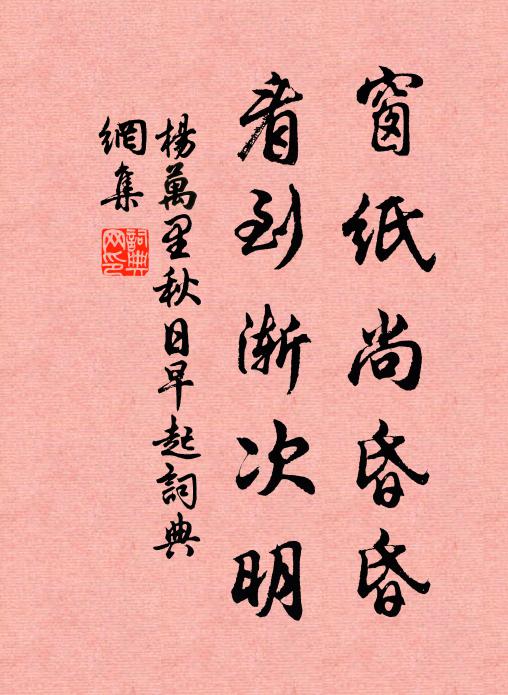 窗紙尚昏昏
看到漸次明
楊萬里秋日早起詞典
網集
詞典
网印